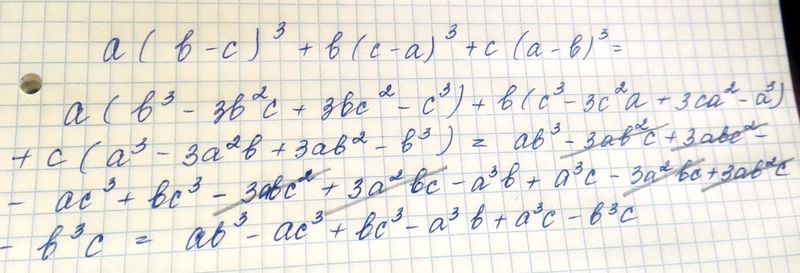 a(b-c)³ + b(c-a)³ + c(a-b)³ =
a(b³ - 3b²c + 3bc² - c³) + b(c³ - 3c²a + 3ca² - a³)
+ c(a³ - 3a²b + 3ab² - b³) = ab³ - 3ab²c + 3abc² -
- ac³ + bc³ - 3abc² + 3a²bc - a³b + a³c - 3a²bc + 3ab²c
- b³c = ab³ - ac³ + bc³ - a³b + a³c - b³c